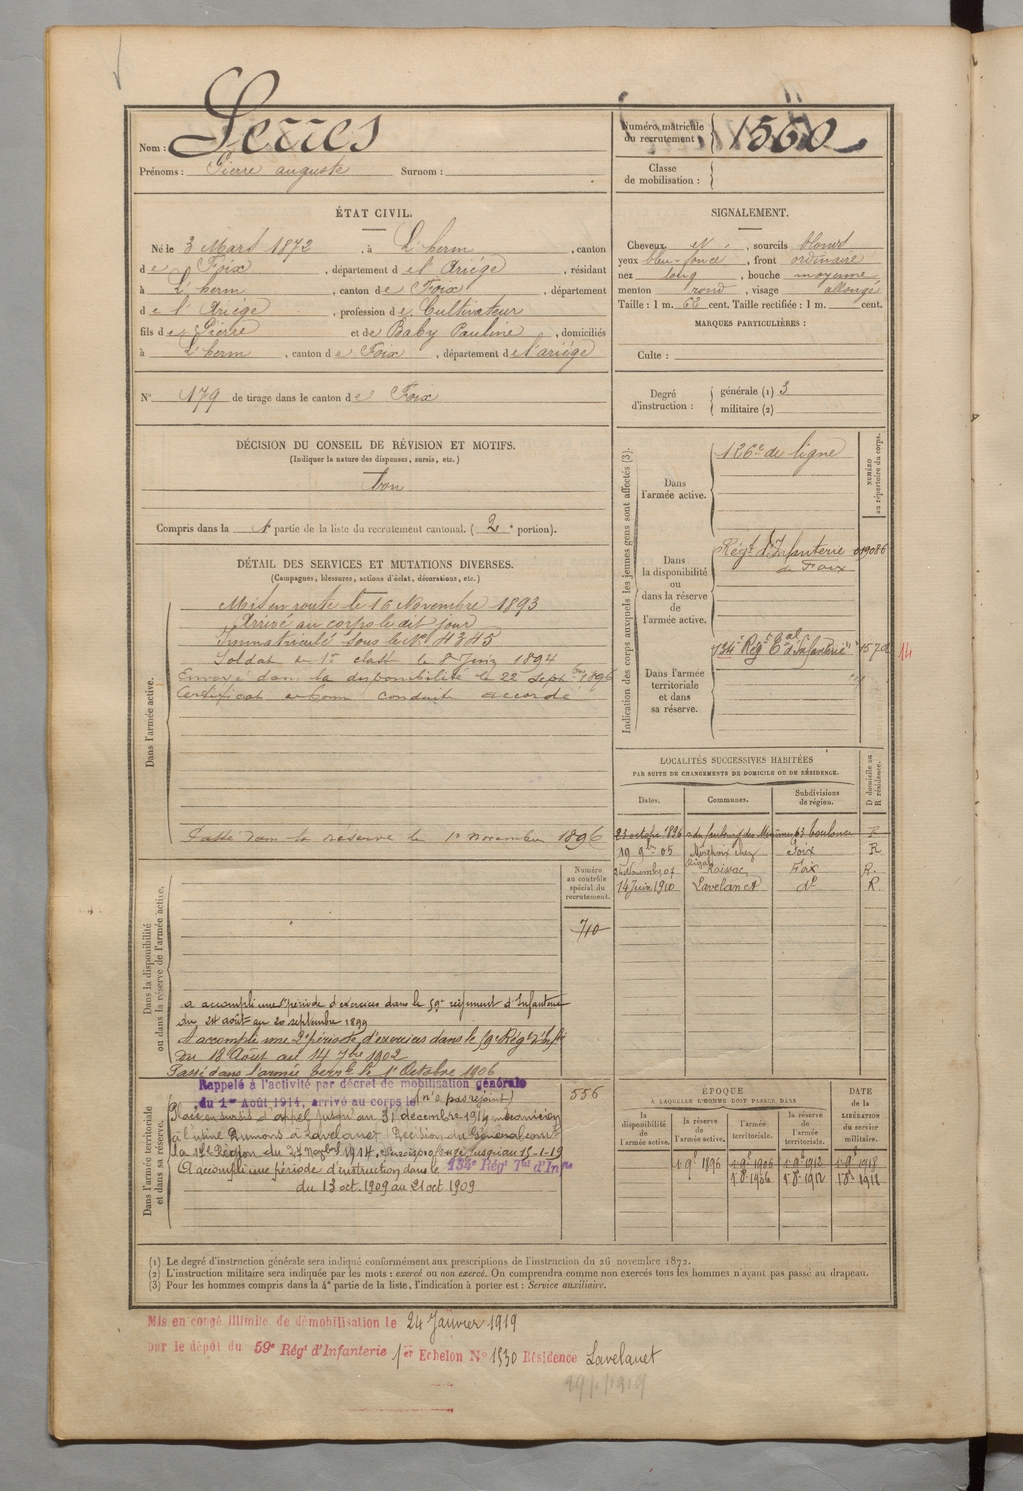 Nom : Serres
Prénoms : Pierre auguste Surnom :
Numéro matricule du recrutement : 1560
Classe de mobilisation :
ÉTAT CIVIL.
Né le 3 Mars 1872, à L'herm, canton
de Foix, département de l'Ariège, résidant
à L'herm, canton de Foix, département
de l'Ariège, profession de Cultivateur
fils de Pierre et de Baby Pauline, domiciliés
à L'herm, canton de Foix, département de l'ariège
N° 179 de tirage dans le canton de Foix
SIGNALEMENT.
Cheveux N, sourcils blonds
yeux bleu-foncé, front ordinaire
nez long, bouche moyenne
menton rond, visage allongé
Taille : 1 m. 62 cent. Taille rectifiée : 1 m. cent.
MARQUES PARTICULIÈRES :
Culte :
Degré d'instruction : générale (1) 3
militaire (2)
DÉCISION DU CONSEIL DE RÉVISION ET MOTIFS.
(Indiquer la nature des dispenses, sursis, etc.)
bon
Compris dans la 1e partie de la liste du recrutement cantonal. (2e portion).
DÉTAIL DES SERVICES ET MUTATIONS DIVERSES.
(Campagnes, blessures, actions d'éclat, décorations, etc.)
Dans l'armée active.
Mis en route le 16 Novembre 1893
Arrivé au corps le dit jour
Immatriculé sous le No 4345
Soldat de 1re classe le 8 Juin 1894
Envoyé dans la disponibilité le 22 Septbre 1896
Certificat de bonne conduite accordé
Passé dans la réserve le 1er novembre 1896
Indication des corps auxquels les jeunes gens sont affectés (3).
NUMÉRO au répertoire du corps.
Dans l'armée active.
126e de ligne
Dans la disponibilité ou dans la réserve de l'armée active.
Régt d'Infanterie de Foix 019086
Dans l'armée territoriale et dans sa réserve.
134e Régt Eal d'Infanterie 1570 14
LOCALITÉS SUCCESSIVES HABITÉES
PAR SUITE DE CHANGEMENTS DE DOMICILE OU DE RÉSIDENCE.
Dates. Communes. Subdivisions de région. D domicile ou R résidence.
23 octobre 1896 r du faubourg des Minimes 63 Toulouse R
19 9bre 05 Mirepoix chez Rigal Foix R
Novembre 07 Foix R.
14 Juin 1910 Lavelanet do R.
Dans la disponibilité ou dans la réserve de l'armée active.
Numéro au contrôle spécial du recrutement.
710
a accompli une 1re période d'exercices dans le 59e régiment d'Infanterie
du 24 août au 20 septembre 1899
A accompli une 2e période d'exercices dans le 59e Régt d'Infie
du 18 Août au 14 7bre 1902
Passé dans l'armée terrle le 1er Octobre 1906
Dans l'armée territoriale et dans sa réserve.
Rappelé à l'activité par décret de mobilisation générale
du 1er Août 1914, arrivé au corps le (n'a pas rejoint)
556
Placé en sursis d'appel jusqu'au 31 décembre 1914 mécanicien
à l'usine Dumons à Lavelanet Décision du Général comt
la 17e Région du 27 novbre 1914, sursis prorogé jusqu'au 15-1-19
A accompli une période d'instruction dans le 134e Régt Tal d'Infie
du 13 oct. 1909 au 21 oct 1909
ÉPOQUE
À LAQUELLE L'HOMME DOIT PASSER DANS
la disponibilité de l'armée active. la réserve de l'armée active. l'armée territoriale. la réserve de l'armée territoriale.
DATE de la LIBÉRATION du service militaire.
1 9e 1896 1 9e 1906 1 9e 1912 1 9e 1918
1 8e 1906 1 8e 1912 1 8e 1918
(1) Le degré d'instruction générale sera indiqué conformément aux prescriptions de l'instruction du 26 novembre 1872.
(2) L'instruction militaire sera indiquée par les mots : exercé ou non exercé. On comprendra comme non exercés tous les hommes n'ayant pas passé au drapeau.
(3) Pour les hommes compris dans la 4e partie de la liste, l'indication à porter est : Service auxiliaire.
Mis en congé illimité de démobilisation le 24 Janvier 1919
par le dépôt du 59e Régt d'Infanterie 1er Echelon No 1530 Résidence Lavelanet
29/1/1919